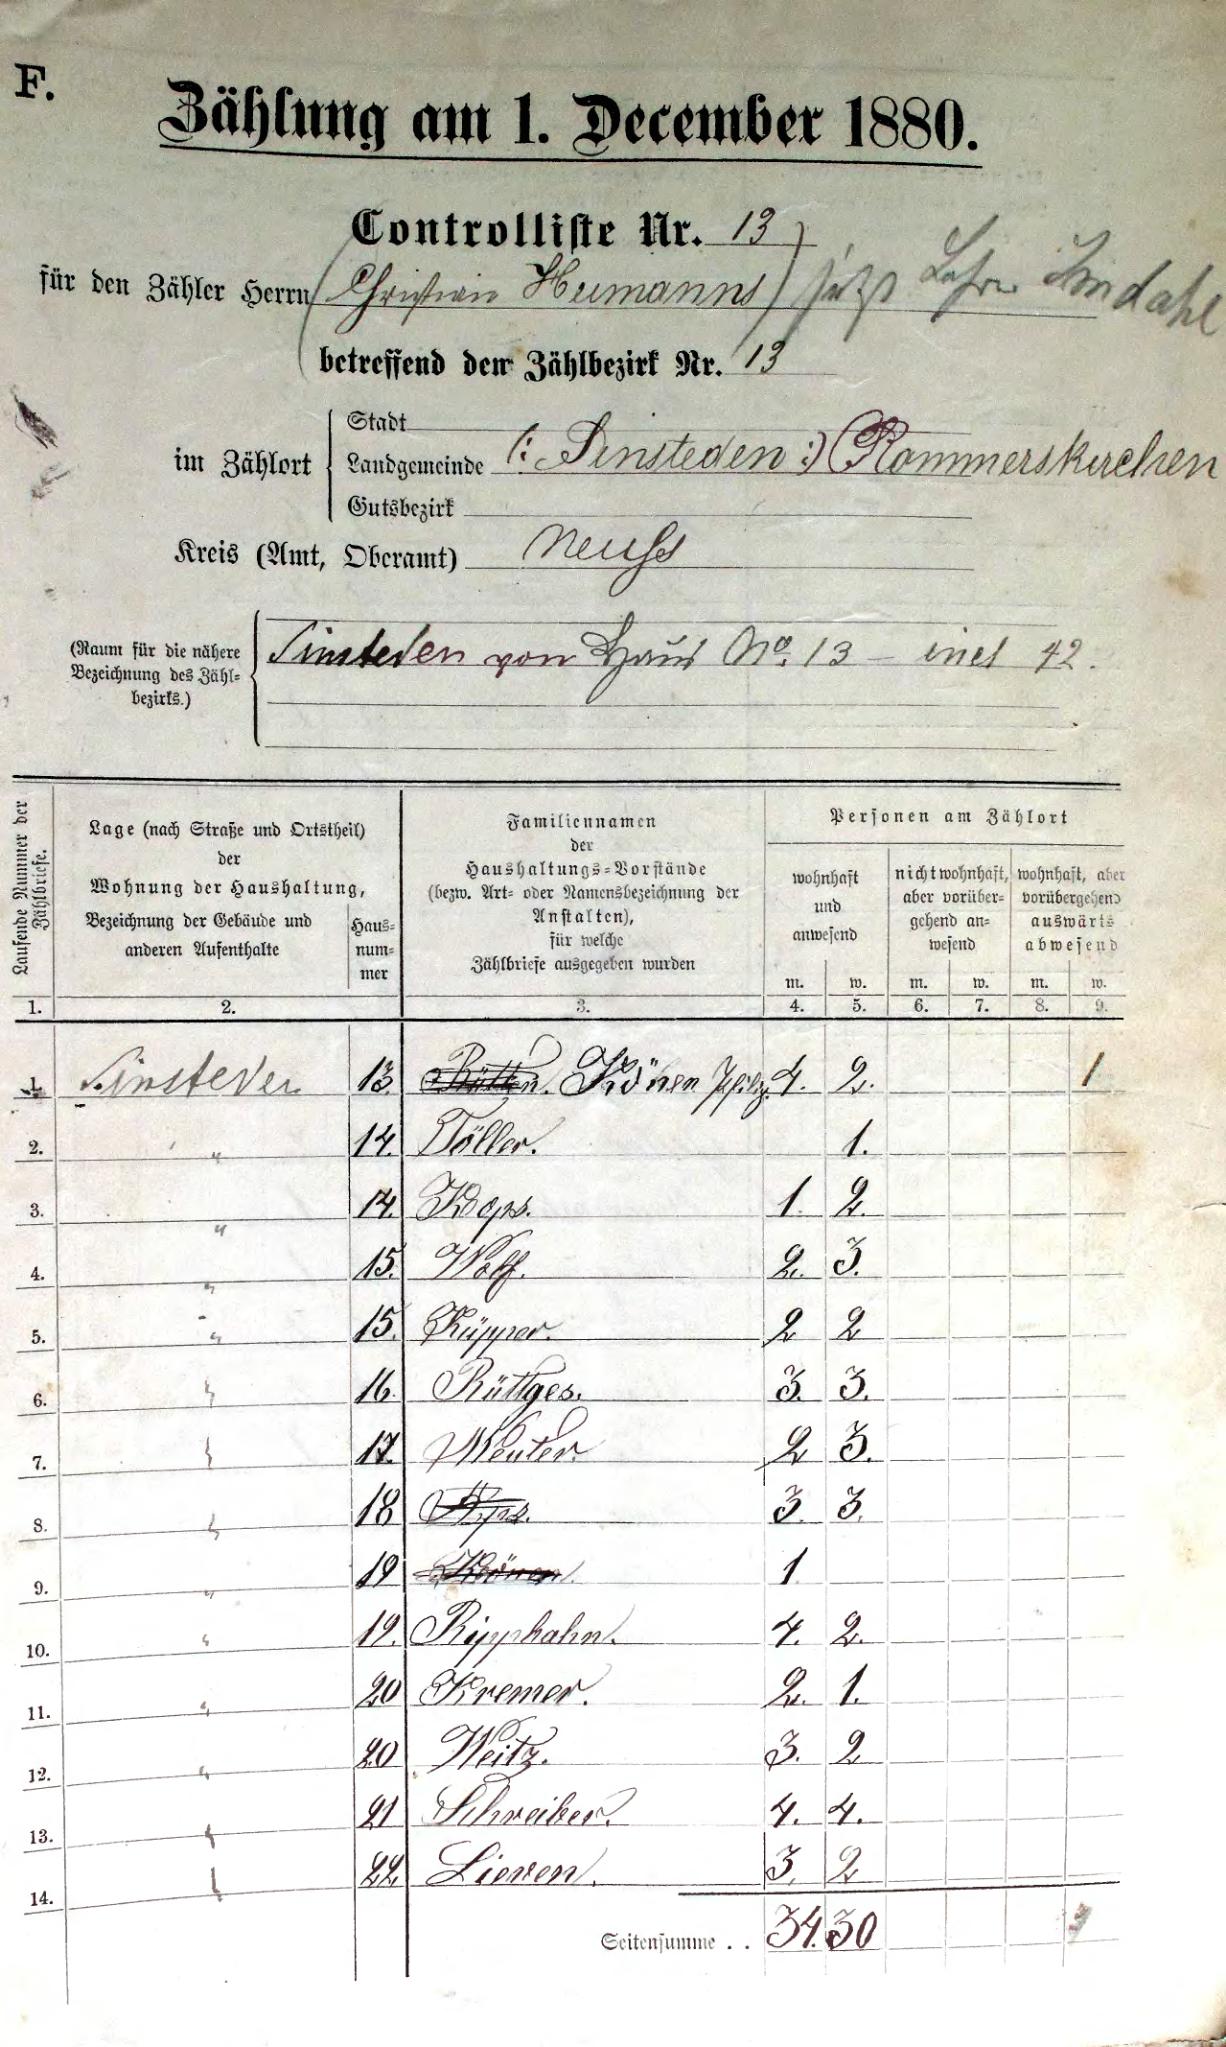 F.
Zählung am 1. December 1880.
Controlliste Nr. 13
für den Zähler Herrn (Christian Heimanns) jetzt Lehrer
betreffend den Zählbezirk Nr. 13
im Zählort
Stadt
Landgemeinde (: Sinsteden :) Rommerskirchen
Gutsbezirk
Kreis (Amt, Oberamt) Neuss
(Raum für die nähere Bezeichnung des Zähl-
bezirks.)
Sinsteden von Haus No. 13 – incl 42.
Laufende Nummer der Zählbriefe.
Lage (nach Straße und Ortstheil)
der
Wohnung der Haushaltung,
Bezeichnung der Gebäude und
anderen Aufenthalte
Haus-
num-
mer
Familiennamen
der
Haushaltungs-Vorstände
(bezw. Art- oder Namensbezeichnung der
Anstalten),
für welche
Zählbriefe ausgegeben wurden
Personen am Zählort
wohnhaft
und
anwesend
nicht wohnhaft,
aber vorüber-
gehend an-
wesend
wohnhaft, aber
vorübergehend
auswärts
abwesend
m. w. m. w. m. w.
1. 2. 3. 4. 5. 6. 7. 8. 9.
1. Sinsteden 13. Könen 4. 2. 1
2. " 14. Töller. 1.
3. " 14. Kops. 1. 2.
4. " 15. Wolf. 2. 3.
5. " 15. Küpper. 2 2
6. " 16. Rüttges. 3. 3.
7. " 17. Reuter. 2 3.
8. " 18 3. 3.
9. " 19 Könen. 1
10. " 19. Ripphahn. 4. 2.
11. " 20 Kremer. 2. 1.
12. " 20 Weitz. 3. 2
13. " 21 Schreiber. 4. 4.
14. " 22. Lieven. 3. 2
Seitensumme . . 34. 30